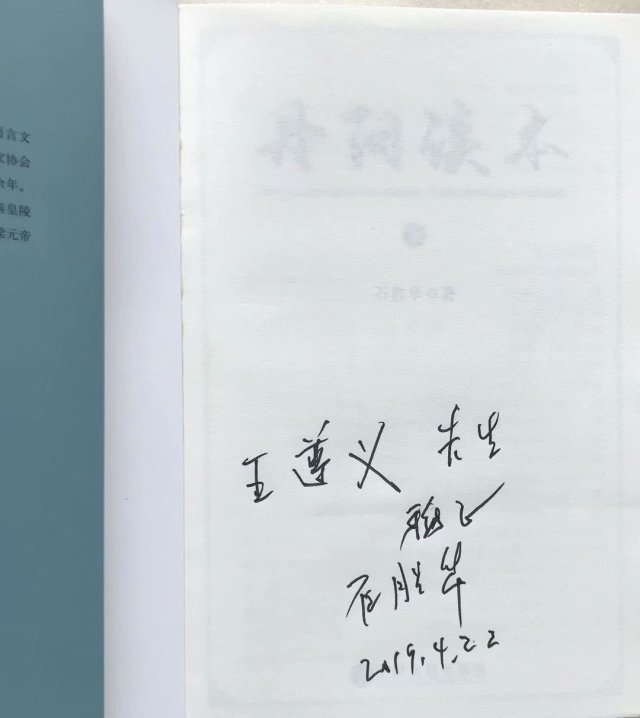 言文
家协会
年。
皇陵
元帝
读本
石胜华 著
王遵义 先生
石胜华
2019.4.22